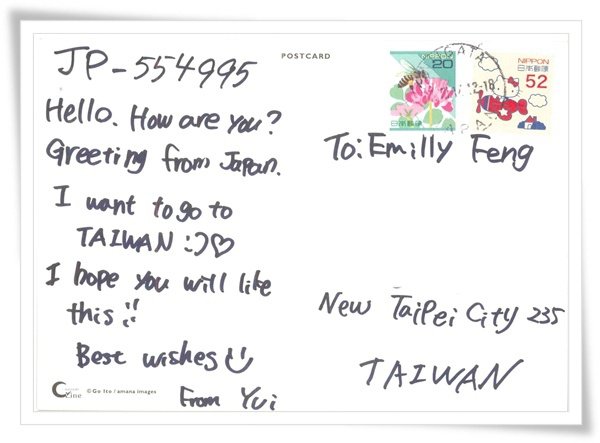 JP-554995
Hello. How are you?
Greeting from Japan.
I want to go to
TAIWAN :)♡
I hope you will like
this !!
Best wishes
From Yui
©Go Ito / amana images
POSTCARD
NIPPON
20
日本郵便
NIPPON
日本郵便
52
To: Emilly Feng
New Taipei City 235
TAIWAN